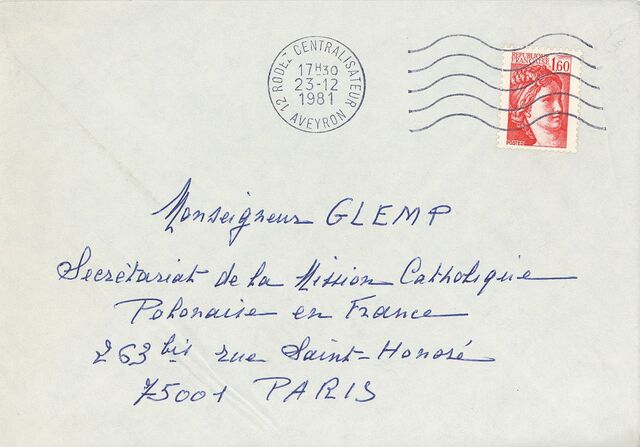 12 RODEZ CENTRALISATEUR
17H30
23-12
1981
AVEYRON
REPUBLIQUE
FRANÇAISE
1,60
POSTES
Monseigneur GLEMP
Secrétariat de la Mission Catholique
Polonaise en France
263 bis rue Saint-Honoré
75001 PARIS